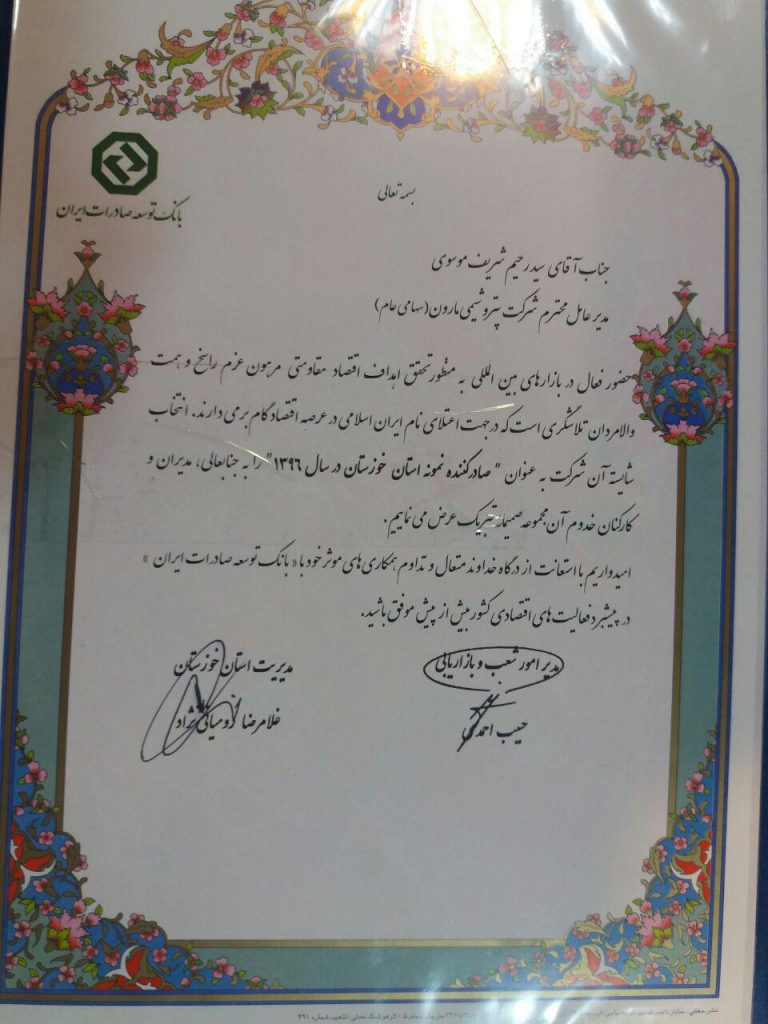 بانک توسعه صادرات ایران
بسمه تعالی
جناب آقای سید رحیم شریف موسوی
مدیر عامل محترم شرکت پتروشیمی مارون (سهامی عام)
حضور فعال در بازارهای بین المللی به منظور تحقق اهداف اقتصاد مقاومتی مرهون عزم راسخ و همت
والامردان تلاشگری است که در جهت اعتلای نام ایران اسلامی در عرصه اقتصاد گام برمی دارند. انتخاب
شایسته آن شرکت به عنوان " صادرکننده نمونه استان خوزستان در سال ۱۳۹۶" را به جنابعالی، مدیران و
کارکنان خدوم آن مجموعه صمیمانه تبریک عرض می نماییم.
امیدواریم با استعانت از درگاه خداوند متعال و تداوم همکاری های موثر خود با « بانک توسعه صادرات ایران »
در پیشبرد فعالیت های اقتصادی کشور بیش از پیش موفق باشید.
مدیر امور شعب و بازاریابی
مدیریت استان خوزستان
حبیب احمدی
غلامرضا رومیانی نژاد
تذهیب شماره ۲۹۱